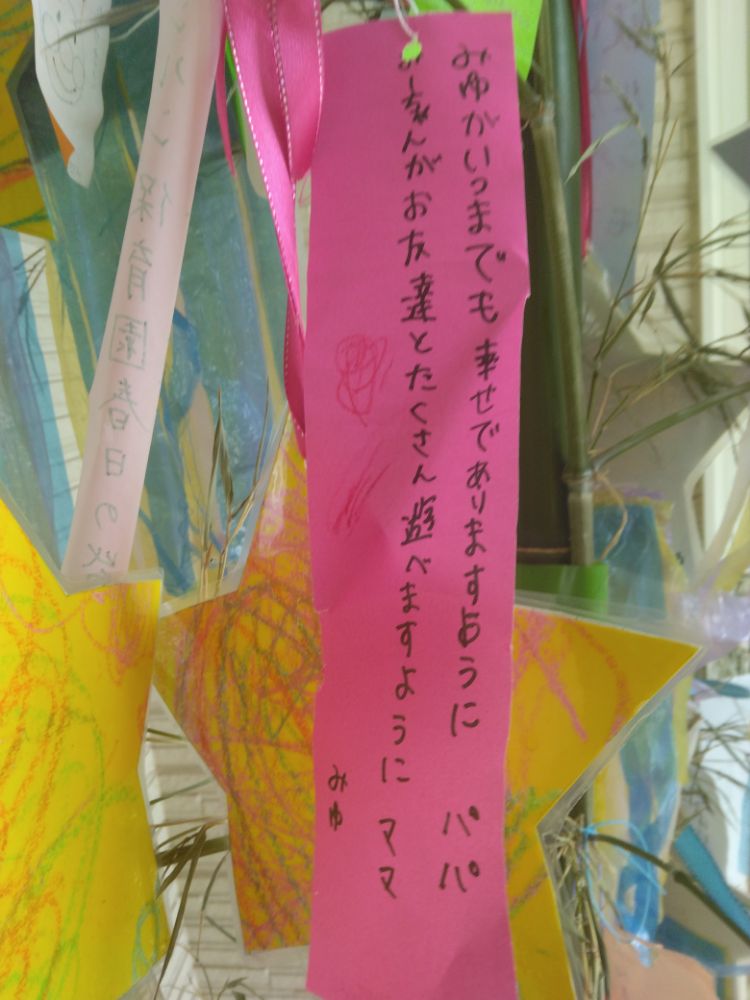 みゆがいつまでも幸せでありますように パパ
みーちゃんがお友達とたくさん遊べますように ママ
みゆ
保育園春日の